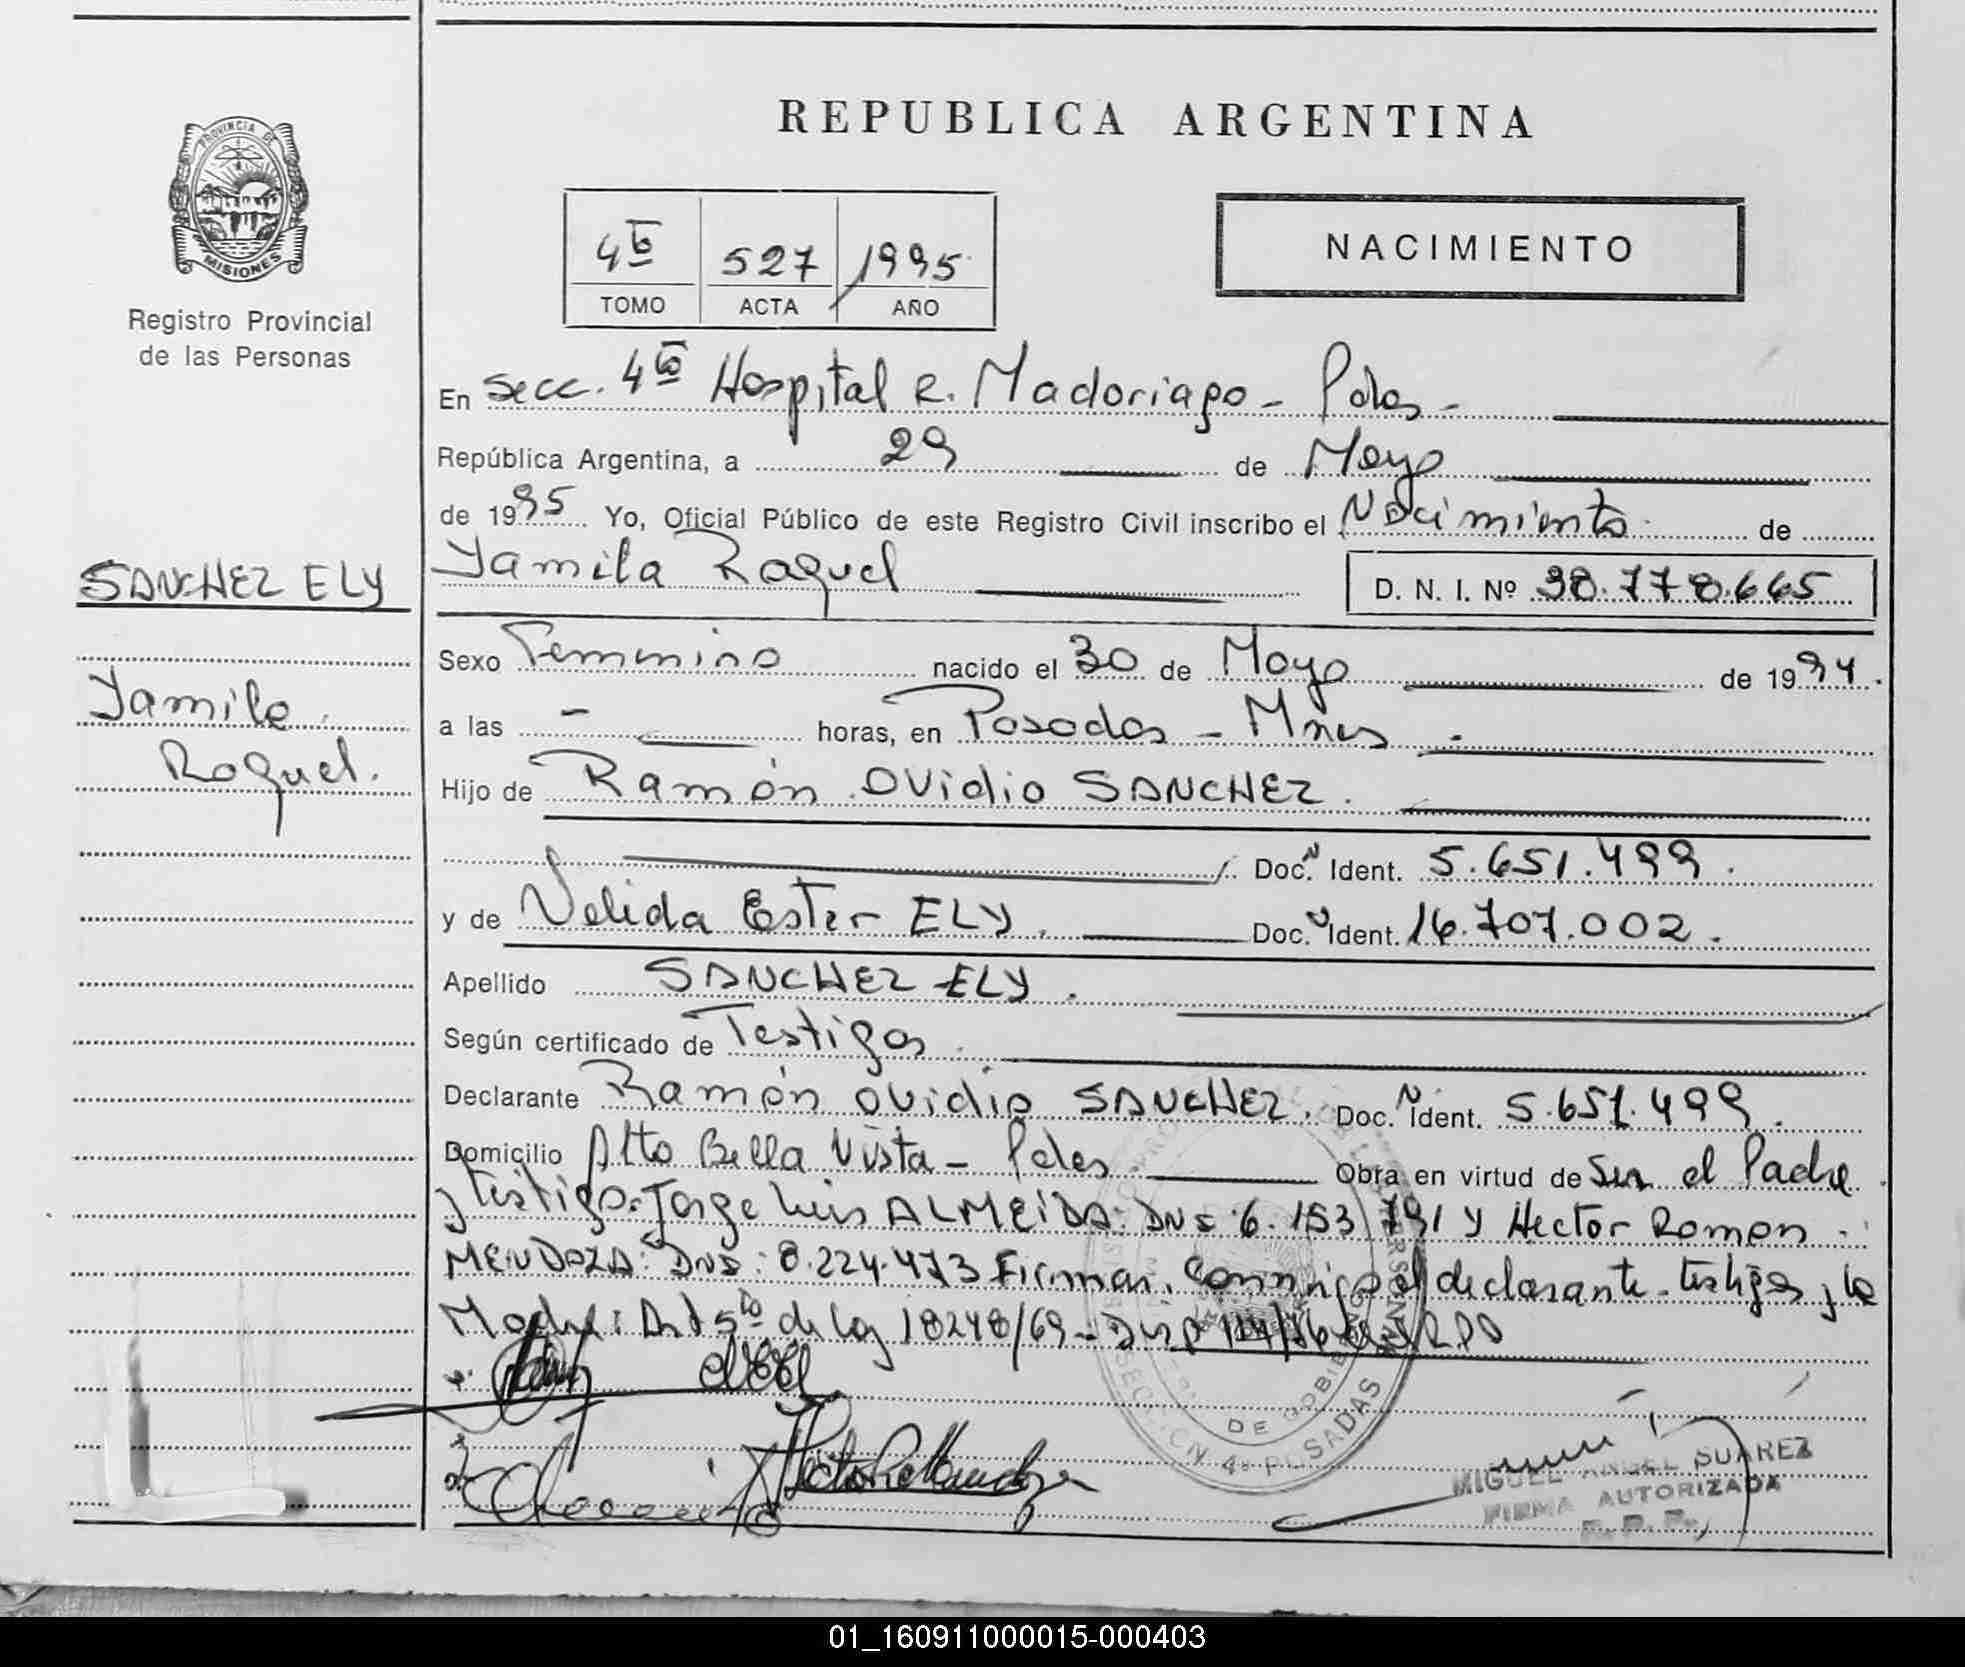 REPUBLICA ARGENTINA
PROVINCIA DE
MISIONES
Registro Provincial
de las Personas
4to 527 1995
TOMO ACTA AÑO
NACIMIENTO
En Secc. 4ta Hospital R. Madariaga - Pdas -
República Argentina, a 29 de Mayo
de 1995 Yo, Oficial Público de este Registro Civil inscribo el Nacimiento de
SANCHEZ ELY
Yamila Raquel
Yamila Raquel D. N. I. Nº 38.778.665
Sexo Femenino nacido el 30 de Mayo de 1994.
a las - horas, en Posadas - Mnes
Hijo de Ramón Ovidio SANCHEZ.
Doc. N Ident. 5.651.499.
y de Nelida Ester ELY. Doc. N Ident. 16.707.002.
Apellido SANCHEZ ELY.
Según certificado de Testigos
Declarante Ramón Ovidio SANCHEZ. Doc. N Ident. 5.651.499.
Domicilio Alto Bella Vista - Pdas Obra en virtud de Ser el Padre
y testigos: Jorge Luis ALMEIDA: DNI: 6.153.791 y Hector Ramon
MENDOZA: DNI: 8.224.473 Firman conmigo el declarante testigos y la
Madre: Art 5to de Ley 18248/69 -
DE GOBIE
SECCION 4ª POSADAS
MIGUEL ANGEL SUAREZ
FIRMA AUTORIZADA
01_160911000015-000403